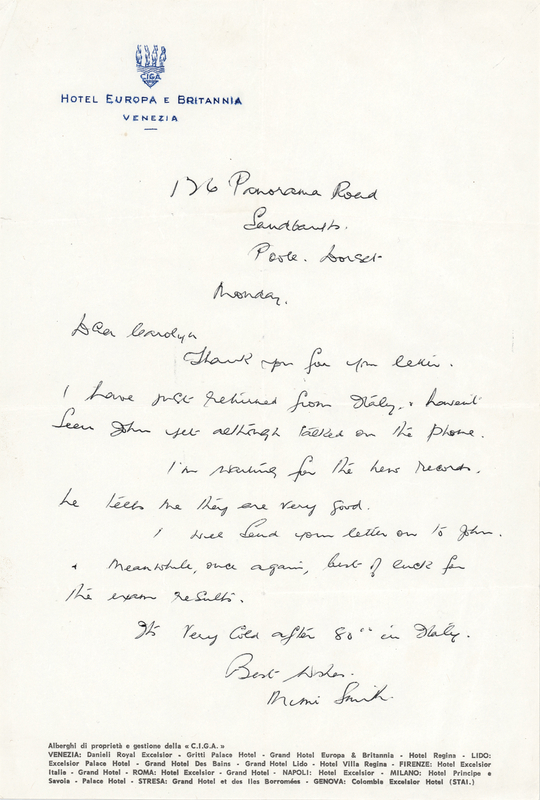 CIGA
HOTEL EUROPA E BRITANNIA
VENEZIA
126 Panorama Road
Sandbanks.
Poole. Dorset
Monday.
Dear Carolyn
Thank you for your letter.
I have just returned from Italy. & haven't
Seen John yet although talked on the phone.
I'm waiting for the new records.
he tells me they are very good.
I will Send your letter on to John.
& Meanwhile, once again, best of luck for
the exam results.
Its Very Cold after 80°° in Italy.
Best Wishes.
Mimi Smith.
Alberghi di proprietà e gestione della « C.I.G.A. »
VENEZIA: Danieli Royal Excelsior - Gritti Palace Hotel - Grand Hotel Europa & Britannia - Hotel Regina - LIDO:
Excelsior Palace Hotel - Grand Hotel Des Bains - Grand Hotel Lido - Hotel Villa Regina - FIRENZE: Hotel Excelsior
Italia - Grand Hotel - ROMA: Hotel Excelsior - Grand Hotel - NAPOLI: Hotel Excelsior - MILANO: Hotel Principe e
Savoia - Palace Hotel - STRESA: Grand Hotel et des Iles Borromées - GENOVA: Colombia Excelsior Hotel (STAI.)